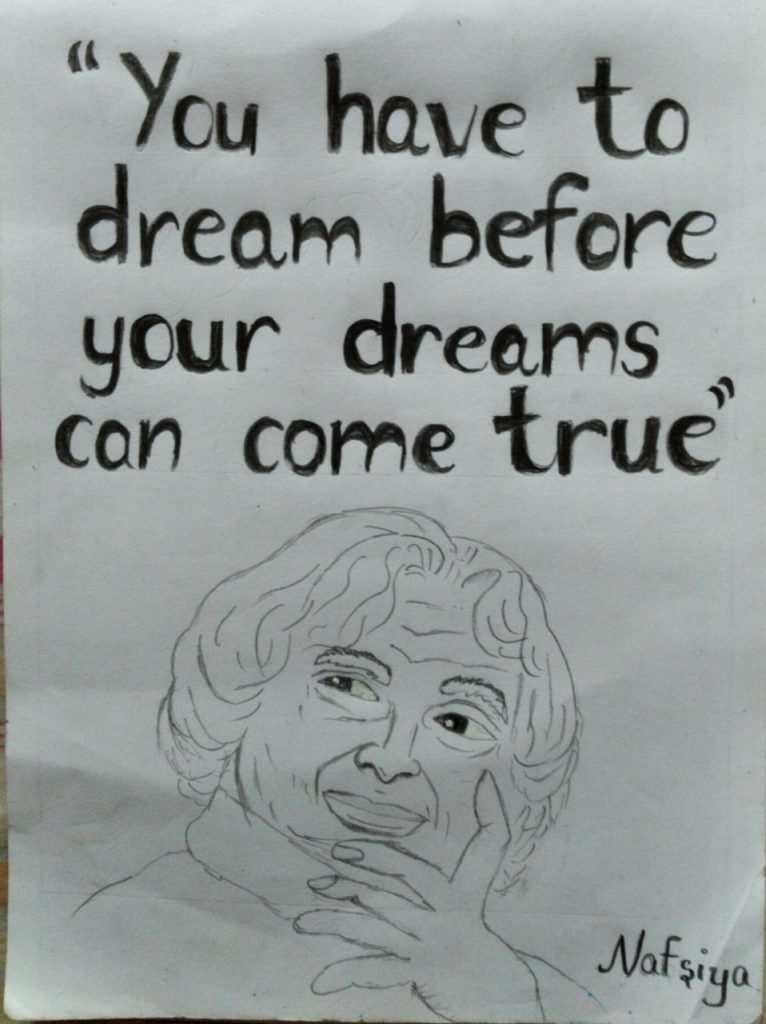 “You have to
dream before
your dreams
can come true”
Nafşiya